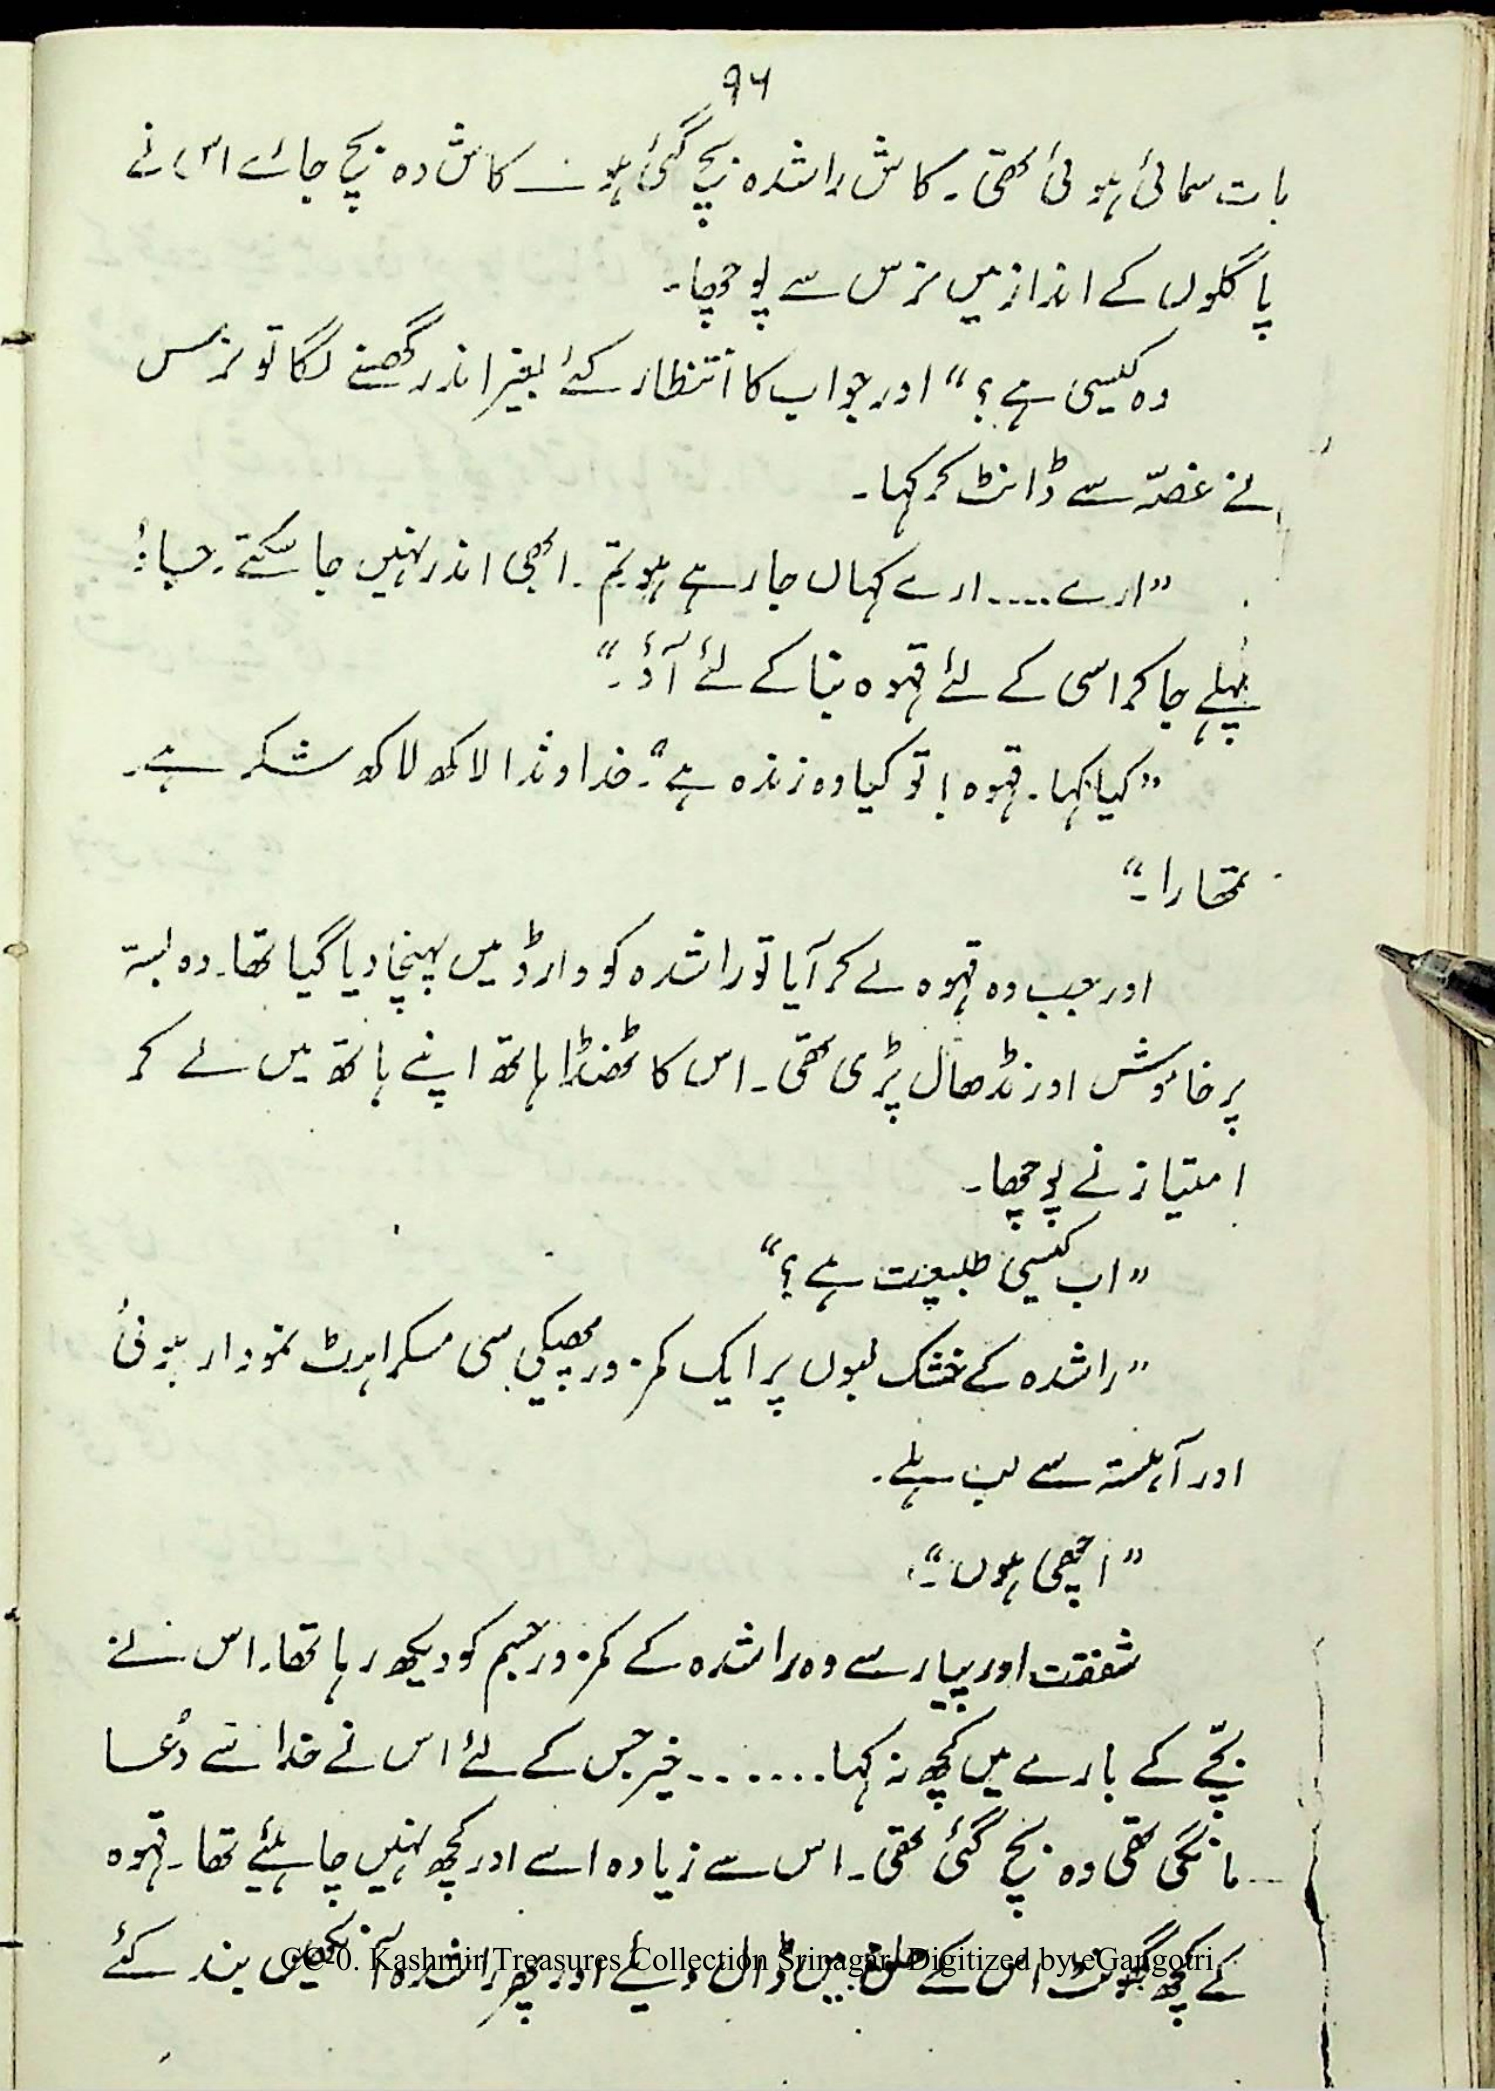 ۹۶
بات سمائی ہوئی تھی۔ کاش راشدہ بچ گئی ہو۔ کاش وہ بچ جائے اس نے
پاگلوں کے انداز میں نرس سے پوچھا۔
وہ کیسی ہے؟“ اور جواب کا انتظار کئے بغیر اندر گھسنے لگا تو نرس
نے غصّہ سے ڈانٹ کر کہا۔
”ارے.... ارے کہاں جا رہے ہو تم۔ ابھی اندر نہیں جا سکتے۔ جاؤ
پہلے جا کر اسی کے لئے قہوہ بنا کے لئے آؤ۔“
”کیا کہا۔ قہوہ! تو کیا وہ زندہ ہے“۔ خداوندا لاکھ لاکھ شکر ہے۔
تمھارا۔“
اور جب وہ قہوہ لے کر آیا تو راشدہ کو وارڈ میں پہنچا دیا گیا تھا۔ وہ بستر
پر خاموش اور نڈھال پڑی تھی۔ اس کا ٹھنڈا ہاتھ اپنے ہاتھ میں لے کر
امتیاز نے پوچھا۔
”اب کیسی طبیعت ہے؟“
”راشدہ کے خشک لبوں پر ایک کمزور پھیکی سی مسکراہٹ نمودار ہوئی
اور آہستہ سے لب ہلے۔
”اچھی ہوں۔“
شفقت اور پیار سے وہ راشدہ کے کمزور جسم کو دیکھ رہا تھا۔ اس نے
بچّے کے بارے میں کچھ نہ کہا....... خیر جس کے لئے اس نے خدا سے دُعا
مانگی تھی وہ بچ گئی تھی۔ اس سے زیادہ اسے اور کچھ نہیں چاہئیے تھا۔ قہوہ
کے کچھ گھونٹ اس کے حلق میں ڈال دیئے اور پھر راشدہ آنکھیں بند کئے
CC-0. Kashmir Treasures Collection Srinagar. Digitized by eGangotri